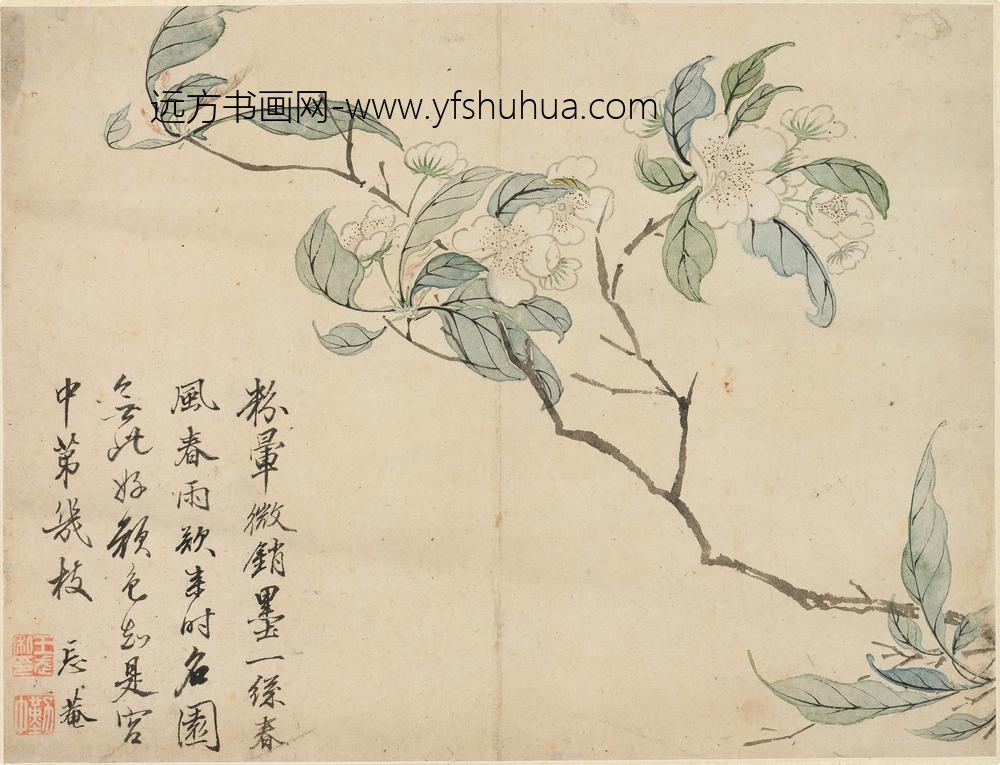 远方书画网-www.yfshuhua.com
粉暈微銷墨一絲春
風春雨欲来时名園
無此好顏色知是宮
中第幾枝 忘菴
王武私印